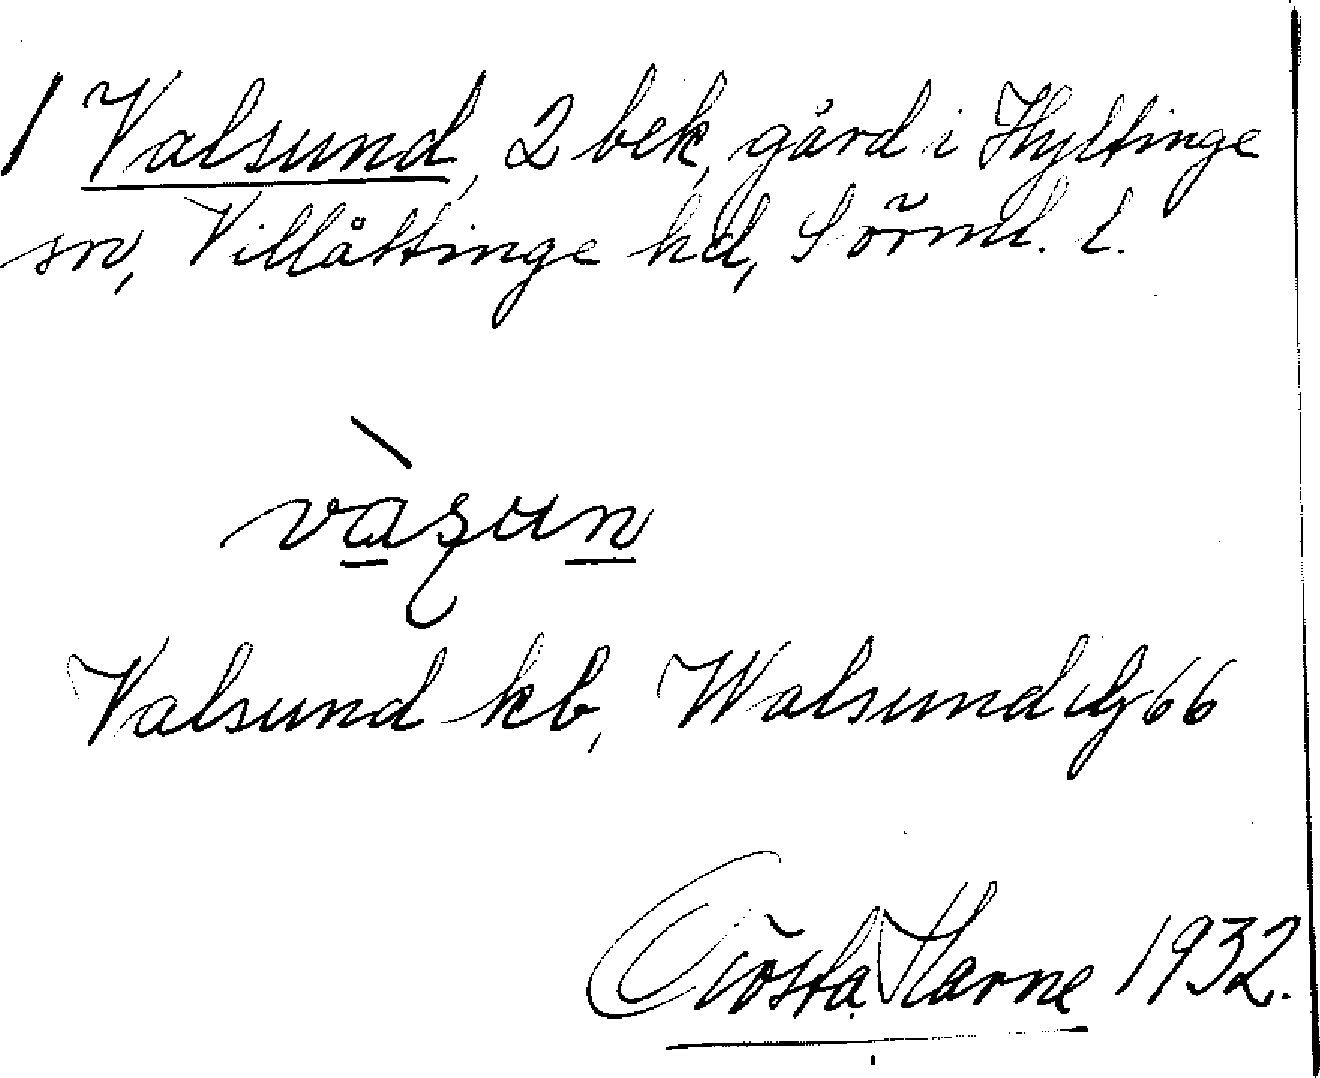 / Valsund, 2 bek, gård i Hyltinge
sn, Villåttinge hd, Sörml. l.
vàsun
Valsund kb, Walsund Jb 66
Gösta Harne 1932.